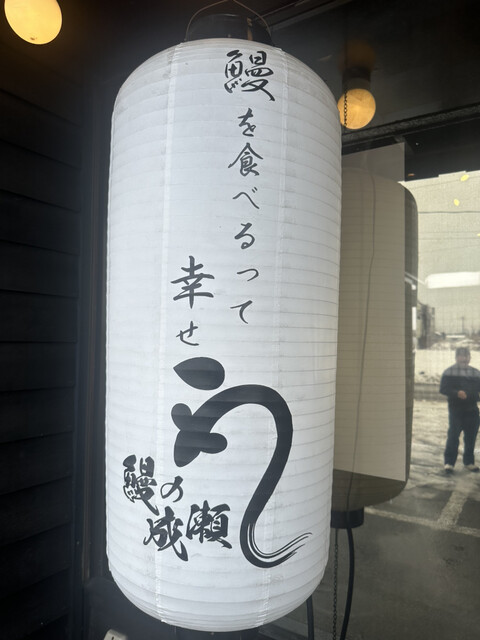 鰻を食べるって
幸せ
鰻の
成瀬